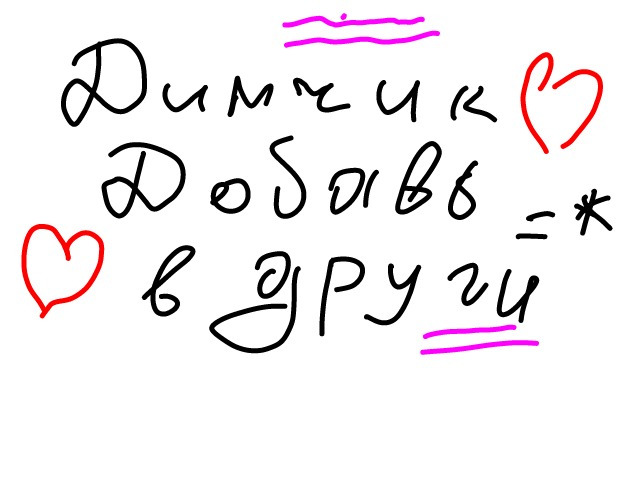 Димчик
Добавь
в други =*